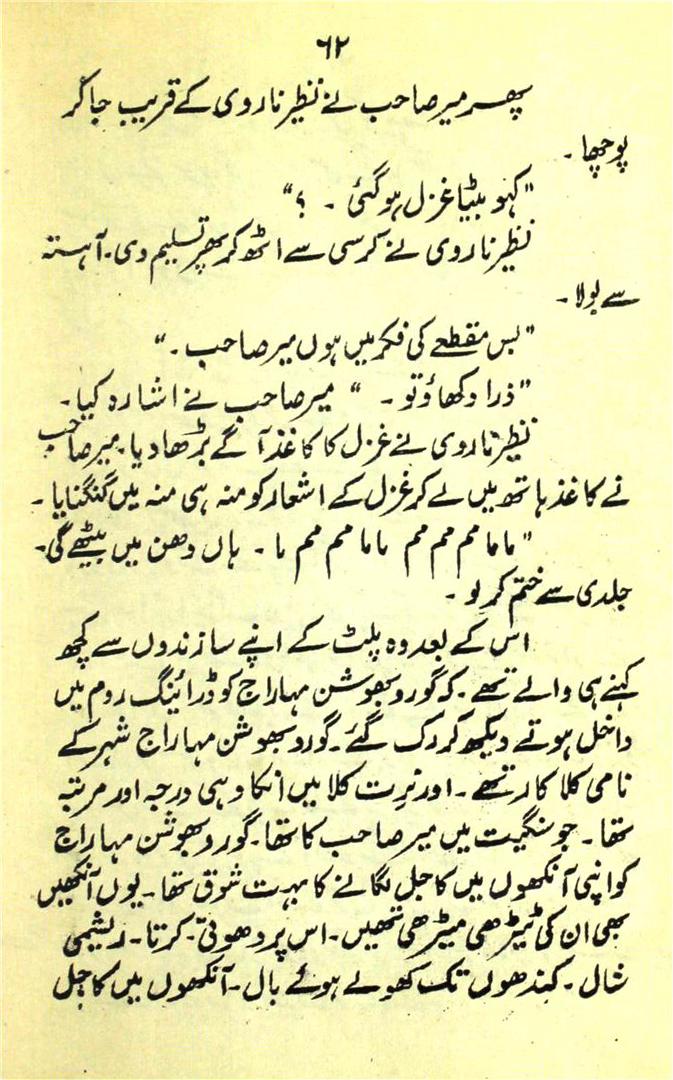 ۶۲
پھر میر صاحب نے نظیر ناروی کے قریب جا کر
پوچھا ۔
"کہو بیٹا غزل ہو گئی ۔ ؟"
نظیر ناروی نے کرسی سے اٹھ کر پھر تسلیم دی۔ آہستہ
سے بولا۔
"بس مقطعے کی فکر میں ہوں میر صاحب ۔"
"ذرا دکھاؤ تو ۔ " میر صاحب نے اشارہ کیا۔
نظیر ناروی نے غزل کا کاغذ آگے بڑھا دیا۔ میر صاحب
نے کاغذ ہاتھ میں لے کر غزل کے اشعار کو منہ ہی منہ میں گنگنایا ۔
"ما ما مم مم مم ما ما مم مم ما ۔ ہاں دھن میں بیٹھے گی۔
جلدی سے ختم کر لو ۔
اس کے بعد وہ پلٹ کے اپنے سازندوں سے کچھ
کہنے ہی والے تھے ۔ کہ گورو بھوشن مہاراج کو ڈرائینگ روم میں
داخل ہوتے دیکھ کر رک گئے ۔ گورو بھوشن مہاراج شہر کے
نامی کلا کار تھے ۔ اور نرت کلا میں انکا وہی درجہ اور مرتبہ
تھا ۔ جو سنگیت میں میر صاحب کا تھا ۔ گورو بھوشن مہاراج
کو اپنی آنکھوں میں کاجل لگانے کا بہت شوق تھا ۔ یوں آنکھیں
بھی ان کی ٹیڑھی میڑھی تھیں ۔ اس پر دھوتی ۔ کرتا ۔ ریشمی
شال ۔ کندھوں تک کھولے ہوئے بال ۔ آنکھوں میں کاجل